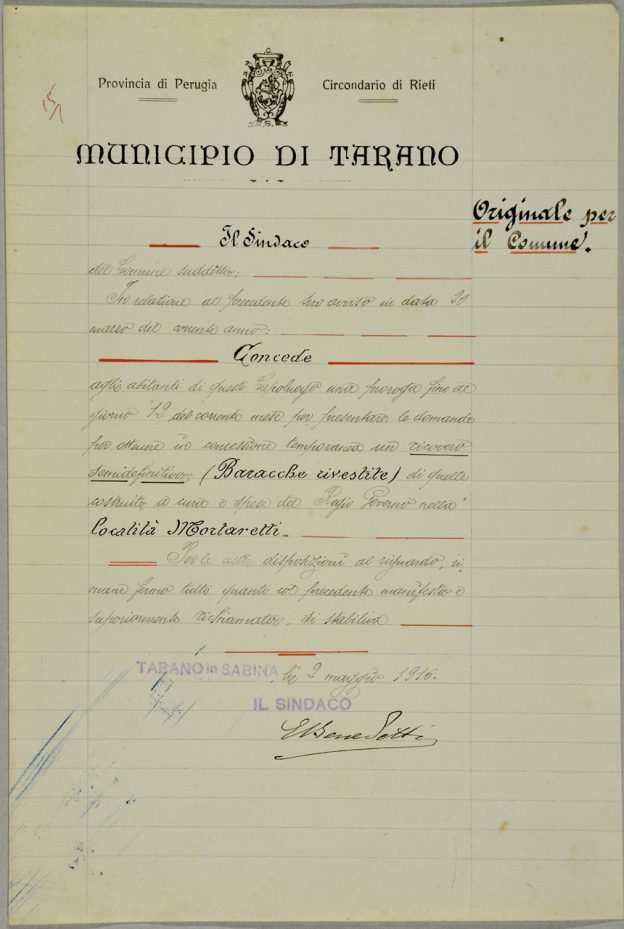 Provincia di Perugia
Circondario di Rieti
MUNICIPIO DI TARANO
Originale per
il Comune.
Il Sindaco
del Comune suddetto:
In relazione al precedente suo avviso in data 30
marzo del corrente anno:
Concede
agli abitanti di questo Capoluogo una proroga fino al
giorno 12 del corrente mese per presentare le domande
per ottenere in concessione temporanea un ricovero
semidefinitivo (Baracche rivestite) di quelle
costruite a cura e spese del Regio Governo nella
località Mortaretti.
Per le altre disposizioni al riguardo, ri-
mane fermo tutto quanto col precedente manifesto
superiormente richiamato, si stabiliva
TARANO in SABINA li 2 maggio 1916.
IL SINDACO
E Benedetti